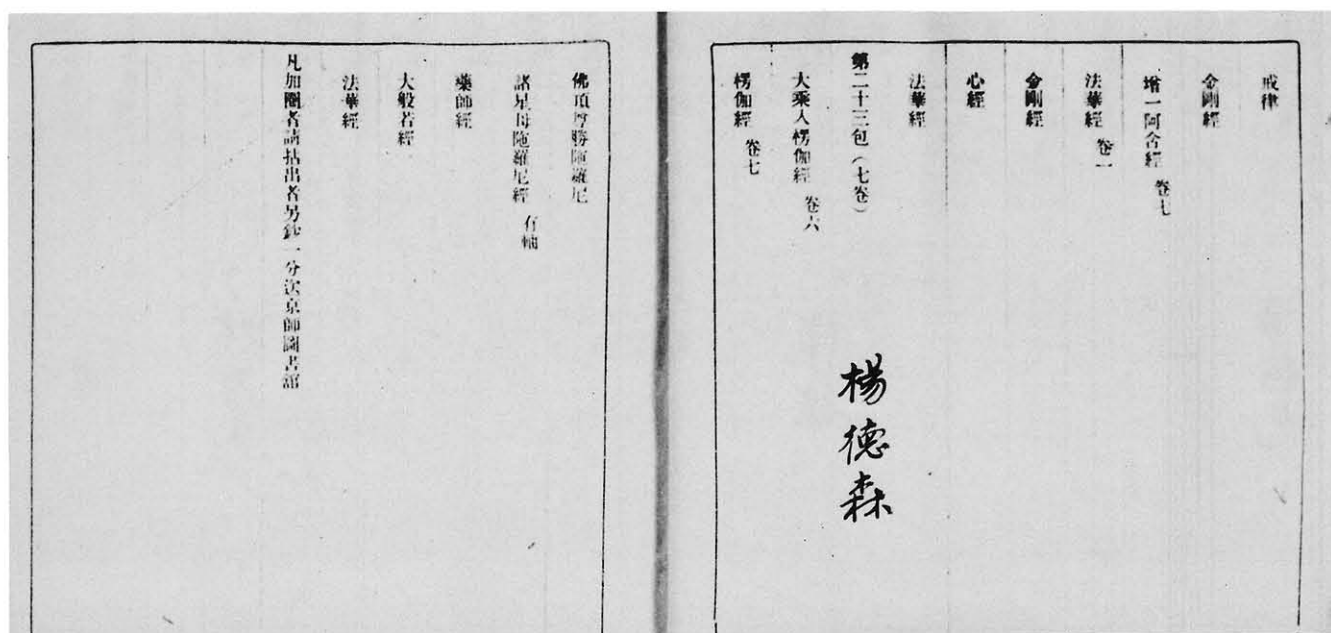 戒律
金剛經
增一阿含經　卷七
法華經　卷一
金剛經
心經
法華經
第二十三包（七卷）
楊德森
大乘入楞伽經　卷六
楞伽經　卷七
佛頂尊勝陁羅尼
諸星母陁羅尼經　有軸
藥師經
大般若經
法華經
凡加圈者請拈出者另鈔一分送京師圖書館